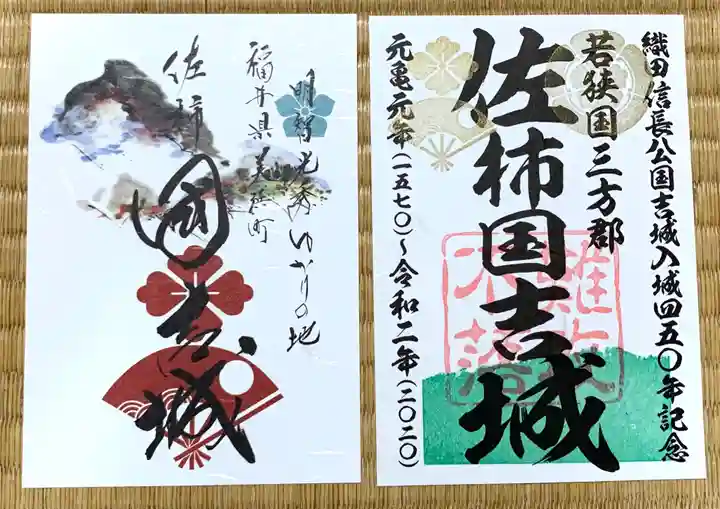 明智光秀ゆかりの地
福井県美浜町
佐柿
國吉城
織田信長公国吉城入城四五〇年記念
若狭国三方郡
佐柿国吉城
元亀元年(一五七〇)～令和二年(二〇二〇)
難攻
不落